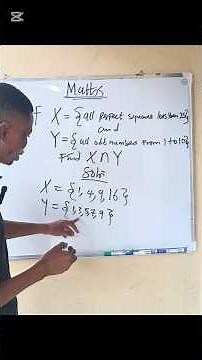 CapCut
Maths
If X = {all perfect squares less than 25}
and
Y = {all odd numbers from 1 to 10}
Find X∩Y
Soln
X = {1, 4, 9, 16}
Y = {1, 3, 5, 7, 9}